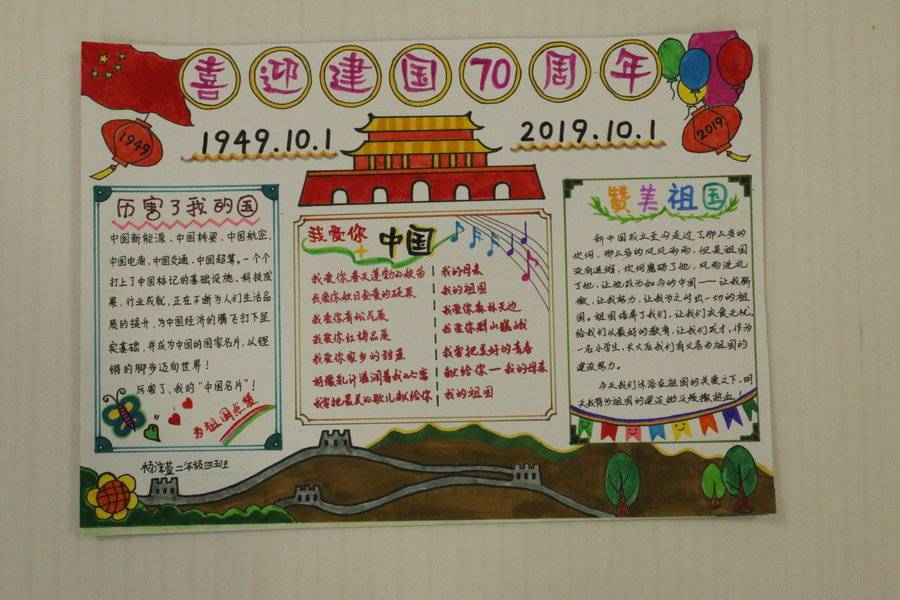 喜迎建国70周年
1949.10.1
2019.10.1
1949
2019
厉害了我的国
中国新能源、中国桥梁、中国航空、
中国电商、中国交通、中国超算,一个个
打上了中国标记的基础设施、科技成
果、行业成就,正在不断为人们生活品
质的提升,为中国经济的腾飞打下坚
实基础,并成为中国的国家名片,以铿
锵的脚步迈向世界!
厉害了,我的“中国名片”!
为祖国点赞
我爱你
中国
我爱你春天蓬勃的秧苗
我爱你秋日金黄的硕果
我爱你青松气质
我爱你红梅品质
我爱你家乡的甜蔗
好像乳汁滋润着我的心窝
我要把最美的歌儿献给你
我的母亲
我的祖国
我爱你森林无边
我爱你群山巍峨
我要把美好的青春
献给你一我的母亲
我的祖国
赞美祖国
新中国成立至今走过了那么多的
坎坷,那么多的风风雨雨,但是祖国
没有退缩,坎坷磨砺了他,风雨洗礼
了他,让他成为如今的中国——让我骄
傲,让我努力,让我为之付出一切的祖
国。祖国培养了我们,让我们衣食无忧,
给我们以最好的教育,让我们成才,作为
一名小学生,长大后我们有义务为祖国的
建设努力。
今天我们沐浴在祖国的关爱之下,明
天我将为祖国的建设抛头颅撒热血!
二年级四班